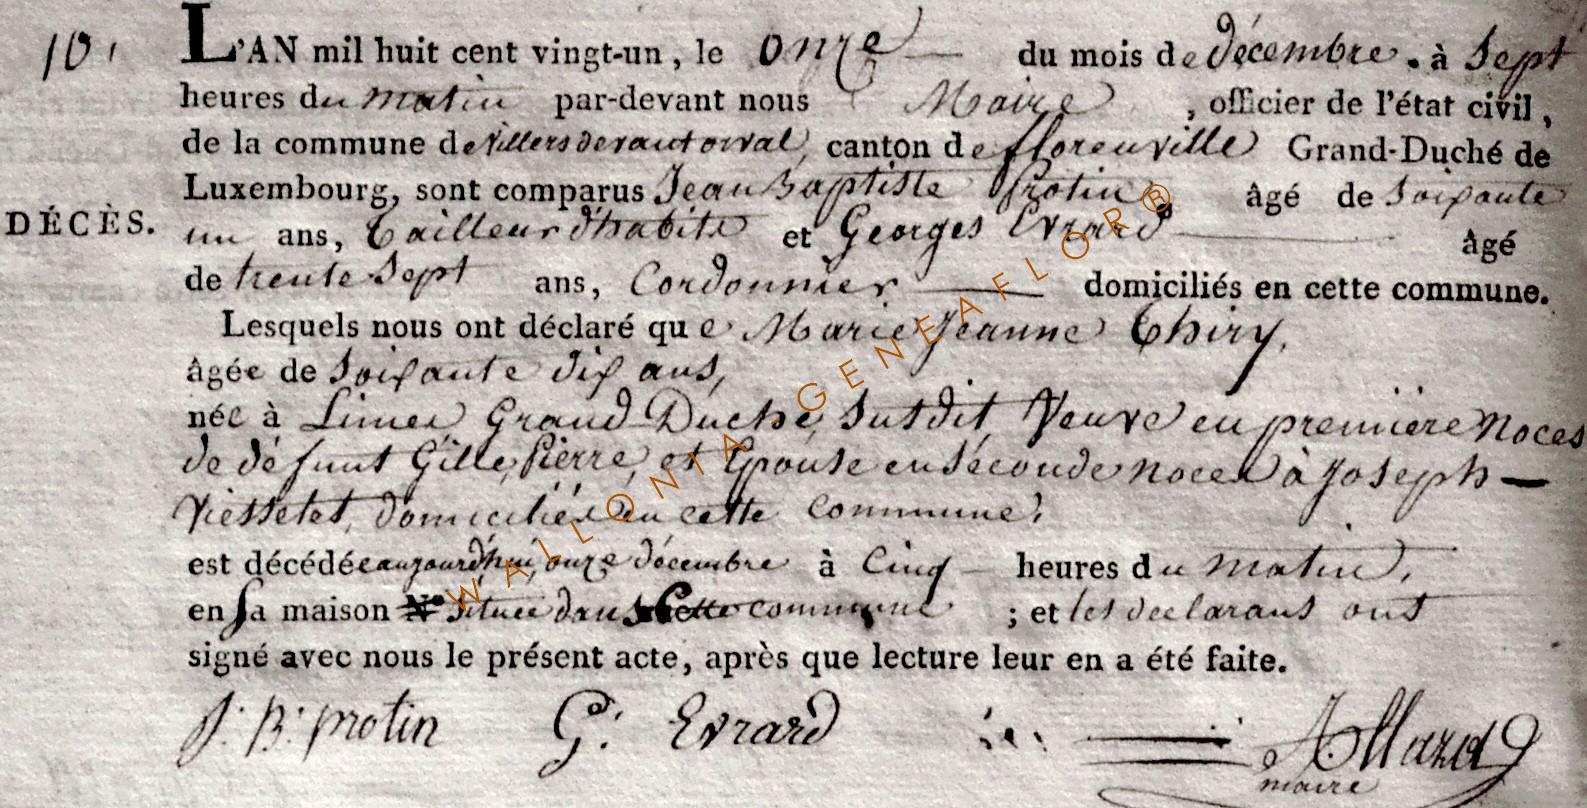 10.
L'AN mil huit cent vingt-un, le onze du mois de décembre. à Sept
heures du matin par-devant nous Maire , officier de l'état civil,
de la commune de villers devant orval, canton de florenville Grand-Duché de
Luxembourg, sont comparus Jean Baptiste Protin âgé de soixante
DÉCÈS.
un ans, tailleur d'habits et Georges Evrard âgé
de trente Sept ans, Cordonnier domiciliés en cette commune.
Lesquels nous ont déclaré que Marie Jeanne Thiry,
âgée de Soixante dix ans,
née à Limes Grand-Duché, Susdit Veuve en première Noces
de défunt Gille, Pierre, et Epouse en Séconde noces à Joseph
domiciliés en cette commune.
est décédée aujourd'hui, onze décembre à Cinq heures du matin,
en sa maison N° située dans Cette commune ; et les declarans ont
signé avec nous le présent acte, après que lecture leur en a été faite.
J: B: protin G: Evrard
maire
WALLONIA - GENEAFLOR®